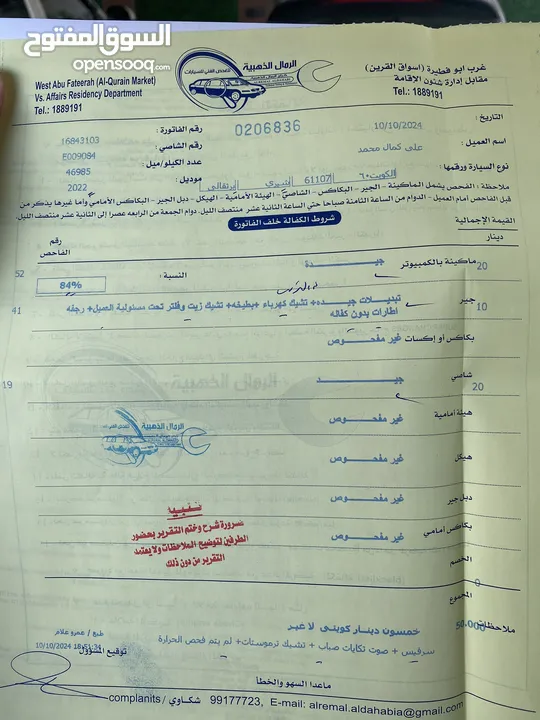 السوق المفتوح
opensooq.com
غرب ابو فطيرة (اسواق القرين)
مقابل إدارة شئون الإقامة
Tel.: 1889191
الرمال الذهبية
للفحص الفني للسيارات
West Abu Fateerah (Al-Qurain Market)
Vs. Affairs Residency Department
Tel.: 1889191
التاريخ : 10/10/2024
0206836
رقم الفاتورة : 16843103
اسم العميل : على كمال محمد
رقم الشاصي : E009084
عدد الكيلو/ميل : 46985
نوع السيارة ورقمها : الكويت٦٠ 61107 شيري برتقالى
موديل : 2022
ملاحظة : الفحص يشمل الماكينة - الجير - البكاكس - الشاصي - الهيئة الأمامية - الهيكل - دبل الجير - البكاكس الأمامي وأما غيرها يذكر من
قبل الفحص امام العميل - الدوام من الساعة الثامنة صباحا حتى الساعة الثانية عشر منتصف الليل. دوام الجمعة من الرابعه عصرا إلى الثانية عشر منتصف الليل.
شروط الكفالة خلف الفاتورة
القيمة الإجمالية
دينار
رقم
الفاحص
20 ماكينة بالكمبيوتر جيـــدة 52
النسبة : 84%
10 جير تبديلات جيـــده + تشيك كهرباء +بطيخه+ تشيك زيت وفلتر تحت مسئولية العميل+ رجفه 41
اطارات بدون كفاله
بكاكس أو إكسات غير مفحـــوص
20 شاصي جيـــد 19
هيئة أمامية غير مفحـــوص
الرمال الذهبية
هيكل غير مفحـــوص
دبل جير غير مفحـــوص
بكاكس أمامي غير مفحـــوص
تنبيه
ضرورة شرح وختم التقرير بحضور
الطرفين لتوضيح الملاحظات ولا يعتمد
التقرير من دون ذلك
الخصم 0
المجموع 50.000
خمسون دينار كويتى لا غير
ملاحظات سرفيس + صوت تكايات صباب + تشيك ترموستات+ لم يتم فحص الحرارة
طبع / عمرو علام
10/10/2024 18:51:34
توقيع المسؤول
ماعدا السهو والخطأ
complanits / شكاوي / 99177723, E-mail: alremal.aldahabia@gmail.com